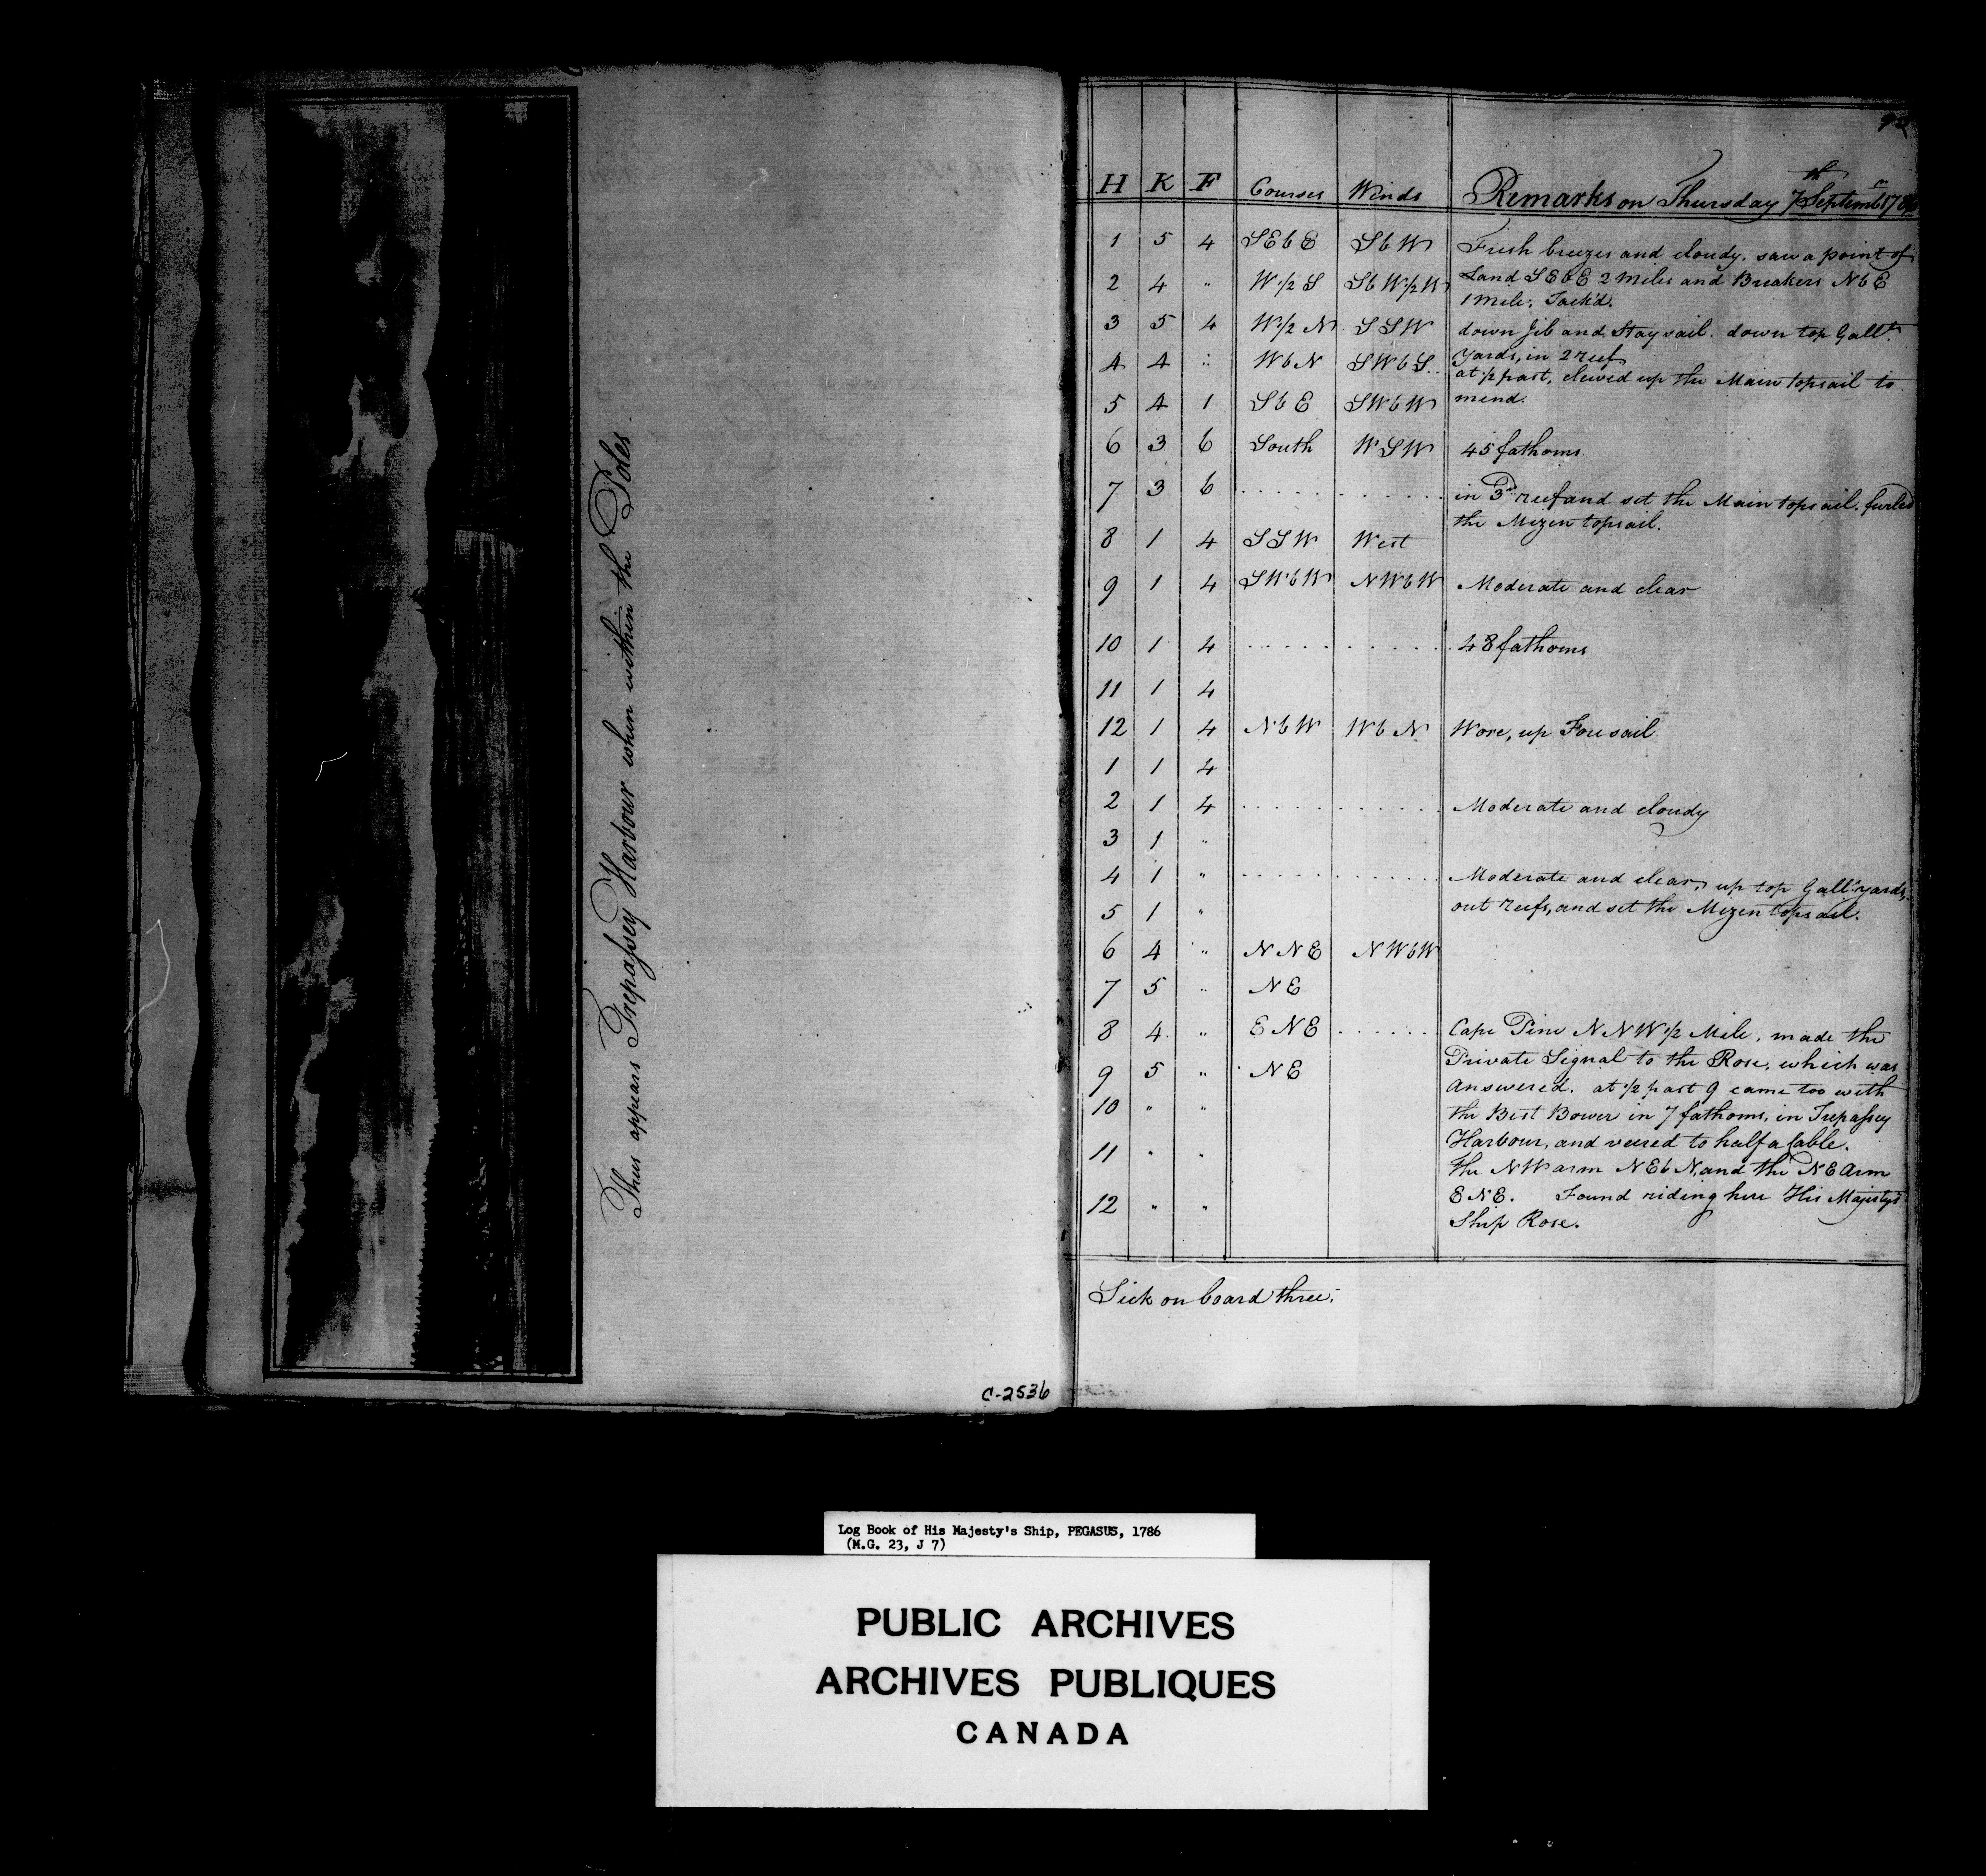 Thus appears Trepassey Harbour when within the Poles
C-2536
H K F Courses Winds Remarks on Thursday 7th Septemr 1786
1 5 4 SEbE SbW Fresh breezes and cloudy. saw a point of
2 4 " W1/2S SbW1/2W Land SEbE 2 Miles and Breakers NbE
1 Mile. Tack'd.
3 5 4 W1/2N SSW down Jib and Stay sail. down top Gallt
Yards, in 2 reef
4 4 " WbN SWbS at 1/2 past, clewed up the Main topsail to
5 4 1 SbE SWbW mend.
6 3 6 South WSW 45 fathoms.
7 3 6 . . . . . . . . . . in 3rd reef and set the Main topsail. furled
the Mizen topsail.
8 1 4 SSW West
9 1 4 SWbW NWbW Moderate and clear
10 1 4 . . . . . . . . . . 48 fathoms
11 1 4
12 1 4 NbW WbN Wore, up Foresail
1 1 4
2 1 4 . . . . . . . . . . Moderate and cloudy
3 1 "
4 1 " . . . . . . . . . . Moderate and clear, up top Gallt yards,
5 1 " out reefs, and set the Mizen topsail.
6 4 " NNE NWbW
7 5 " NE
8 4 " ENE . . . . . . Cape Pine NNW 1/2 Mile. made the
Private Signal to the Rose, which was
9 5 " NE Answered. at 1/2 past 9 came too with
10 " " the Best Bower in 7 fathoms, in Trepassey
Harbour, and veered to half a Cable.
11 " " the NW arm NEbN, and the NE Arm
12 " " ENE. Found riding here His Majesty's
Ship Rose.
Sick on board three.
Log Book of His Majesty's Ship, PEGASUS, 1786
(M.G. 23, J 7)
PUBLIC ARCHIVES
ARCHIVES PUBLIQUES
CANADA